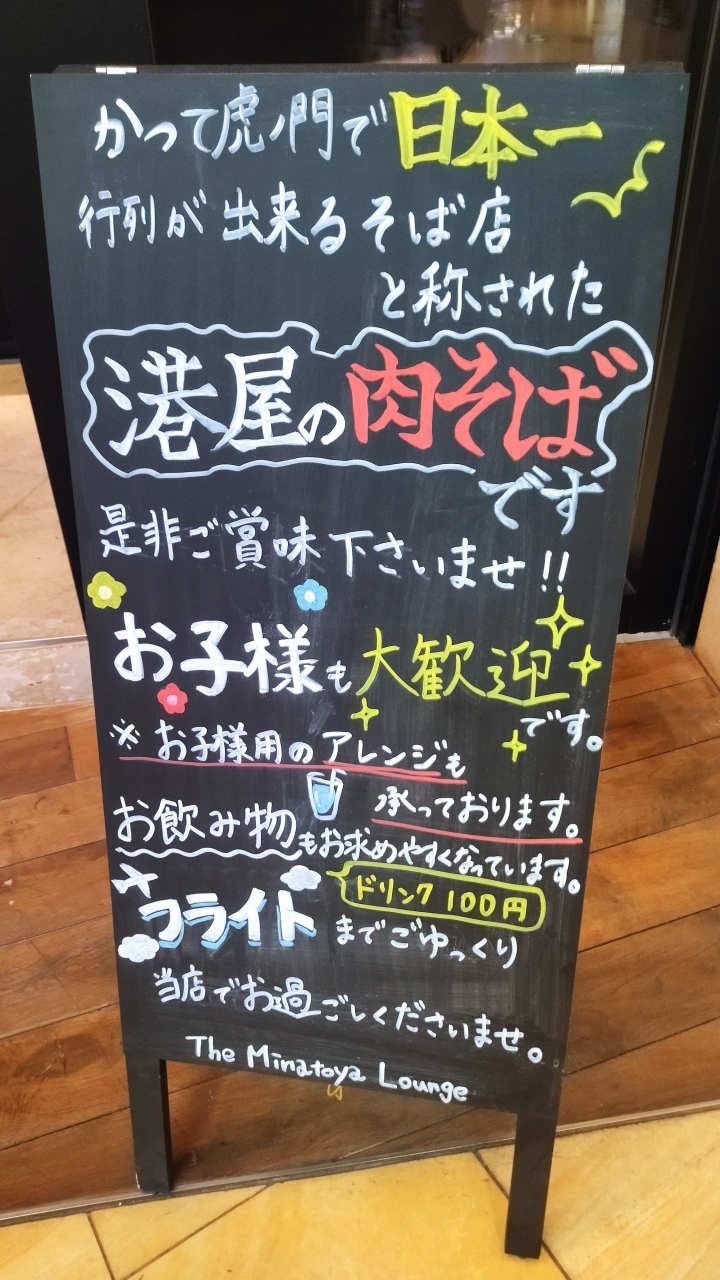 かつて虎ノ門で日本一
行列が出来るそば店
と称された
港屋の肉そば
です
是非ご賞味下さいませ!!
お子様も大歓迎
です。
※お子様用のアレンジも
承っております。
お飲み物もお求めやすくなっています。
ドリンク100円
フライトまでごゆっくり
当店でお過ごしくださいませ。
The Minatoya Lounge